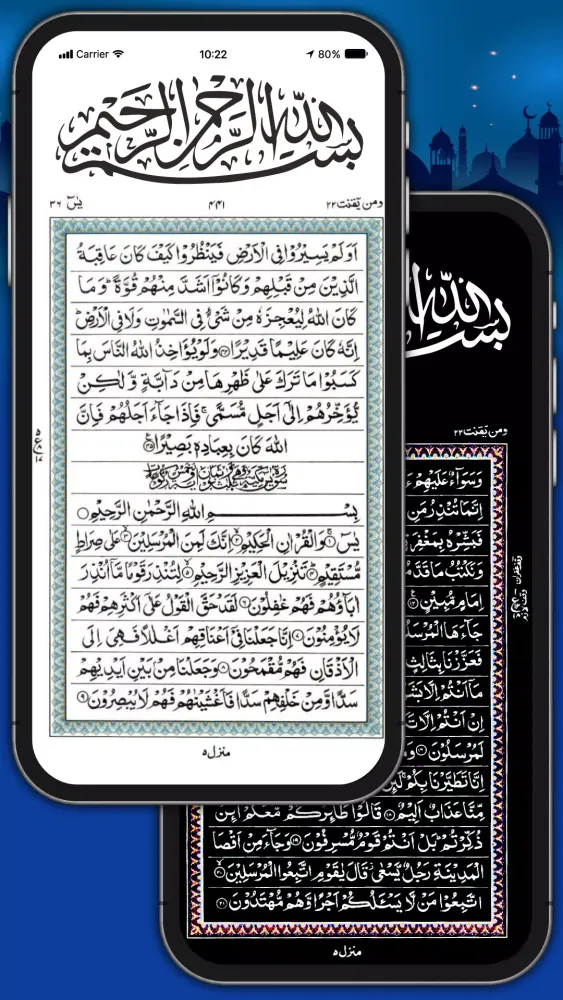 Carrier 10:22 80%
بسم الله الرحمن الرحيم
ومن يقنت ۲۲ ۴۴۱ يٰسٓ ۳۶
اَوَلَمْ يَسِيْرُوْا فِي الْاَرْضِ فَيَنْظُرُوْا كَيْفَ كَانَ عَاقِبَةُ
الَّذِيْنَ مِنْ قَبْلِهِمْ وَكَانُوْٓا اَشَدَّ مِنْهُمْ قُوَّةً ؕ وَمَا
كَانَ اللّٰهُ لِيُعْجِزَهٗ مِنْ شَيْءٍ فِي السَّمٰوٰتِ وَلَا فِي الْاَرْضِ ؕ
اِنَّهٗ كَانَ عَلِيْمًا قَدِيْرًا ﴿۴۴﴾ وَلَوْ يُؤَاخِذُ اللّٰهُ النَّاسَ بِمَا
كَسَبُوْا مَا تَرَكَ عَلٰى ظَهْرِهَا مِنْ دَآبَّةٍ وَّلٰكِنْ
يُّؤَخِّرُهُمْ اِلٰٓى اَجَلٍ مُّسَمًّى ۚ فَاِذَا جَآءَ اَجَلُهُمْ فَاِنَّ
اللّٰهَ كَانَ بِعِبَادِهٖ بَصِيْرًا ﴿۴۵﴾
بِسْمِ اللّٰهِ الرَّحْمٰنِ الرَّحِيْمِ
يٰسٓ ۚ﴿۱﴾ وَالْقُرْاٰنِ الْحَكِيْمِ ۙ﴿۲﴾ اِنَّكَ لَمِنَ الْمُرْسَلِيْنَ ۙ﴿۳﴾ عَلٰى صِرَاطٍ
مُّسْتَقِيْمٍ ؕ﴿۴﴾ تَنْزِيْلَ الْعَزِيْزِ الرَّحِيْمِ ۙ﴿۵﴾ لِتُنْذِرَ قَوْمًا مَّآ اُنْذِرَ
اٰبَآؤُهُمْ فَهُمْ غٰفِلُوْنَ ﴿۶﴾ لَقَدْ حَقَّ الْقَوْلُ عَلٰٓى اَكْثَرِهِمْ فَهُمْ
لَا يُؤْمِنُوْنَ ﴿۷﴾ اِنَّا جَعَلْنَا فِيْٓ اَعْنَاقِهِمْ اَغْلٰلًا فَهِيَ اِلَى
الْاَذْقَانِ فَهُمْ مُّقْمَحُوْنَ ﴿۸﴾ وَجَعَلْنَا مِنْۢ بَيْنِ اَيْدِيْهِمْ
سَدًّا وَّمِنْ خَلْفِهِمْ سَدًّا فَاَغْشَيْنٰهُمْ فَهُمْ لَا يُبْصِرُوْنَ ﴿۹﴾
منزل ۵
ومن يقنت ۲۲
وَسَوَآءٌ عَلَيْهِمْ
اِنَّمَا تُنْذِرُ مَنِ
فَبَشِّرْهُ بِمَغْفِرَ
وَنَكْتُبُ مَا قَدَّمُ
اِمَامٍ مُّبِيْنٍ ﴿۱۲﴾
جَآءَهَا الْمُرْسَلُ
فَعَزَّزْنَا بِثَالِثٍ
مَآ اَنْتُمْ اِلَّا بَشَ
اِنْ اَنْتُمْ اِلَّا تَ
لَمُرْسَلُوْنَ ﴿۱۶﴾ وَ
اِنَّا تَطَيَّرْنَا بِكُمْ ۚ لَئِنْ
مِّنَّا عَذَابٌ اَلِيْمٌ ﴿۱۸﴾ قَالُوْا طَآئِرُكُمْ مَّعَكُمْ ؕ اَئِنْ
ذُكِّرْتُمْ ؕ بَلْ اَنْتُمْ قَوْمٌ مُّسْرِفُوْنَ ﴿۱۹﴾ وَجَآءَ مِنْ اَقْصَا
الْمَدِيْنَةِ رَجُلٌ يَّسْعٰى ۫ قَالَ يٰقَوْمِ اتَّبِعُوا الْمُرْسَلِيْنَ ﴿۲۰﴾
اتَّبِعُوْا مَنْ لَّا يَسْـَٔلُكُمْ اَجْرًا وَّهُمْ مُّهْتَدُوْنَ ﴿۲۱﴾
منزل ۵